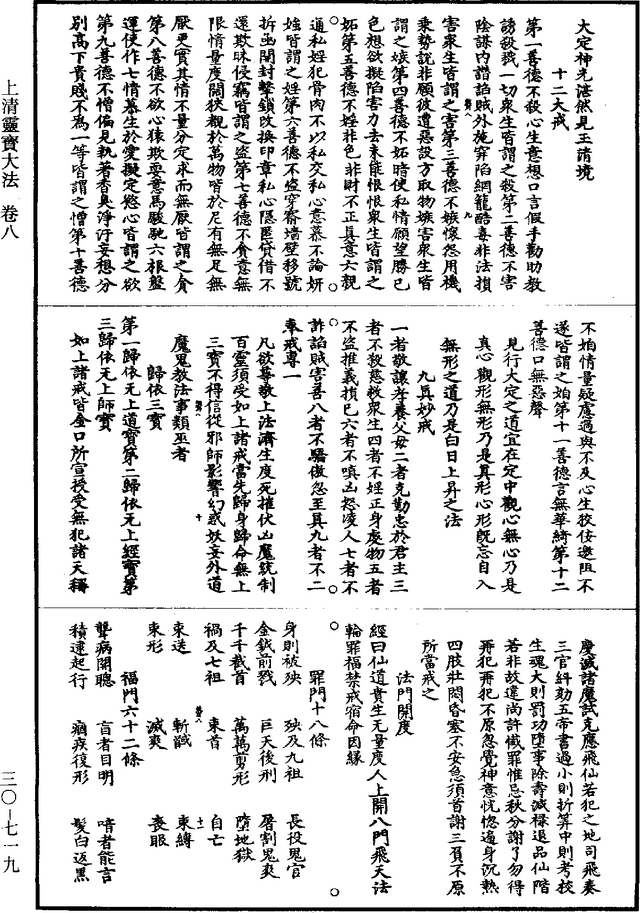 大定神光湛然見玉清境
十二大戒
第一善德不殺心生意想口言假手勸助教
誘殺戮一切衆生皆謂之殺第二善德不害
陰謀內譖諂賊外施穽陷網籠酷毒非法損
害衆生皆謂之害第三善德不嫉懷怨用機
乘勢說非願彼遭惡設方取物嫉害衆生皆
謂之嫉第四善德不妬時使私情願望勝已
色想欲擬陷害力去未能恨恨衆生皆謂之
妬第五善德不婬非色非財不正真意六親
通私婬犯骨肉不以私交私心意慕不論妍
媸皆謂之婬第六善德不盜穿窬墻壁移號
拆函開封擊鎖改換印章私心隱匿貸借不
還欺昧侵竊皆謂之盜第七善德不貪意無
限情量度闊狹觀於萬物皆於尼有無足無
厭更實其情不量分定求而無厭皆謂之貪
第八善德不欲心猿欺耍意馬駿馳六根盤
運使作七情慕生於愛擬定慾心皆謂之欲
第九善德不憎偏見執著香臭淨汙妄想分
別高下貴賤不爲一等皆謂之憎第十善德
不妬情量疑慮過與不及心生狡佞邀阻不
遂皆謂之妬第十一善德言無華綺第十二
善德口無惡聲
見行大定之道宜在定中觀心無心乃是
真心觀形無形乃是真形心形旣忘自入
無形之道乃是白日上昇之法
九真妙戒
一者敬讓孝養父母二者克勤忠於君主三
者不殺慈救衆生四者不婬正身處物五者
不盜推義損已六者不嗔凶怒凌人七者不
詐諂賊害善八者不驕傲忽至真九者不二
奉戒專一
凡欲尊敬上法濟生度死摧伏凶魔統制
百靈須受如上諸戒當先歸身歸命無上
三寶不得信從邪師影響幻惑妖妄外道
魔鬼教法事類巫者
歸依三寶
第一歸依无上道寶第二歸依无上經寶第
三歸依无上師寶
如上諸戒皆金口所宣授受無犯諸天稱
慶滅諸魔試克應飛仙若犯之地司飛奏
三官糾劾五帝書過小則折算中則考校
生魂大則罰功墮事除壽減祿退品仙階
若非故違尚許懺罪惟忌秋分謝了勿得
再犯再犯不原忽覺神意恍惚遍身沉熱
四肢壯悶昏塞不安急須首謝三負不原
所當戒之
法門開度
經曰仙道貴生无量度人上開八門飛天法
輪罪福禁戒宿命因緣
罪門十八條
身則被殃 殃及九祖 長役鬼官
金鉞前戮 巨天後刑 屠割鬼爽
千千截首 萬萬剪形 墮地獄
禍及七祖 束首 自亡
束送 斬馘 束縛
束形 滅爽 喪眼
福門六十二條
聾病開聰 盲者目明 喑者能言
積逮起行 痼疾復形 髮白返黑
上清靈寶大法 卷八
三〇—七一九